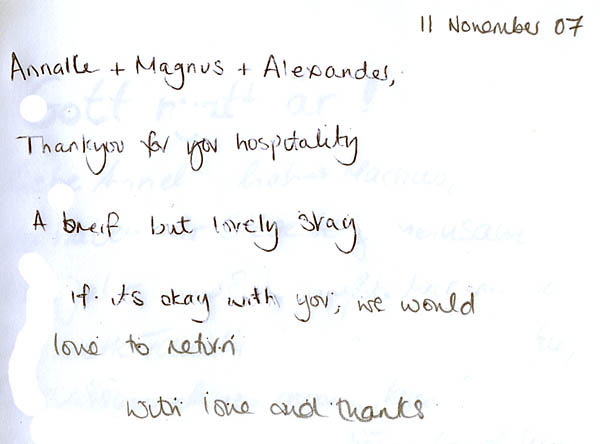 11 November 07
Annalle + Magnus + Alexander,
Thankyou for you hospitality
A breif but lovely stay
If its okay with you, we would
love to return
With love and thanks